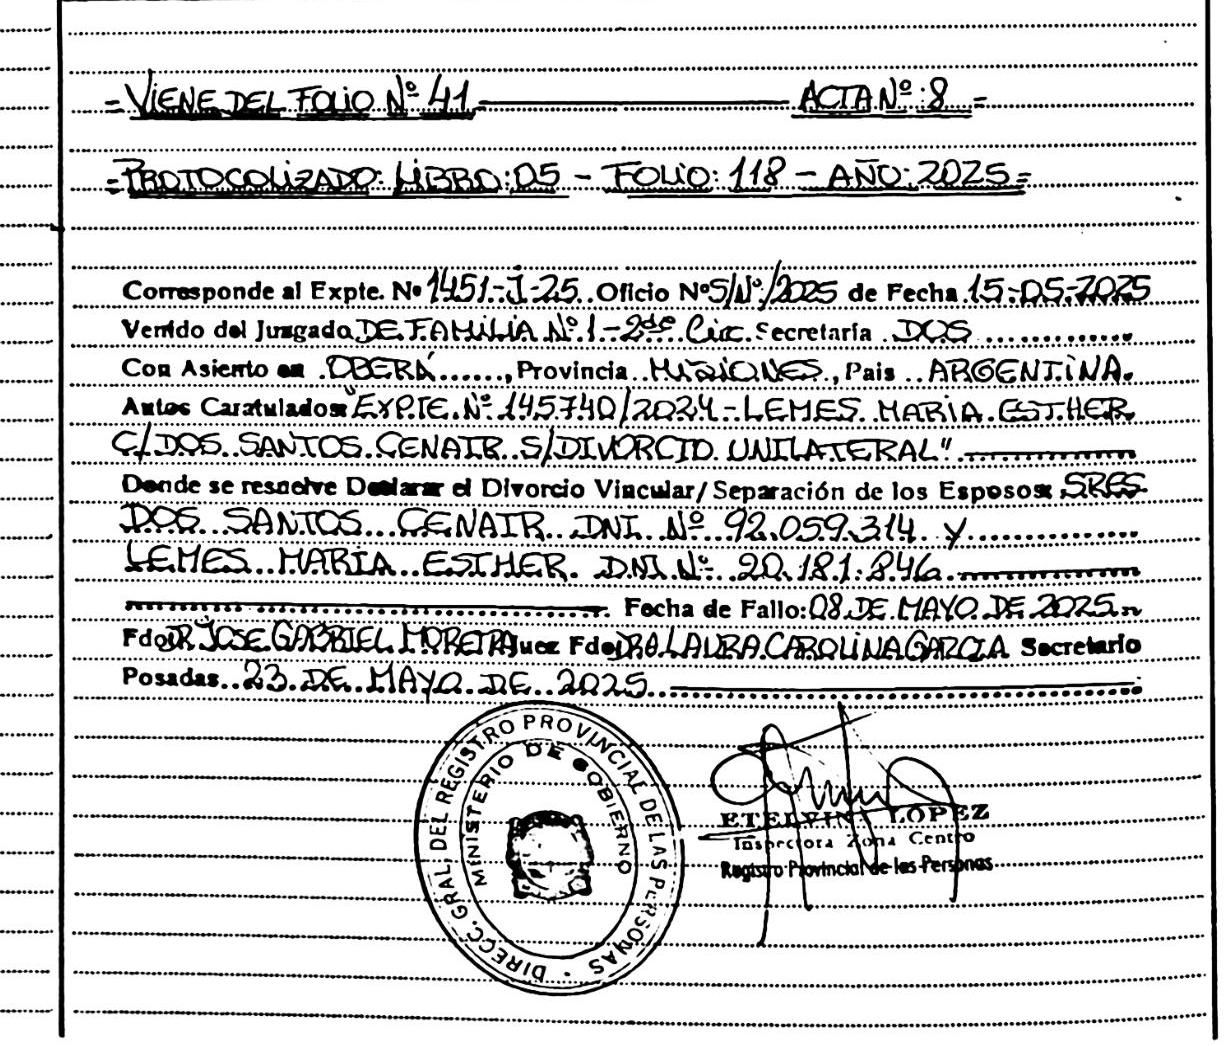 = VIENE DEL FOLIO Nº 41 ACTA Nº: 8 =
= PROTOCOLIZADO: LIBRO: 05 - FOLIO: 118 - AÑO: 2025 =
Corresponde al Expte. Nº 1451-J-25 Oficio Nº S/Nº/2025 de Fecha 15-05-2025
Venido del Juzgado DE FAMILIA Nº 1 - 2da Circ. Secretaría DOS
Con Asiento en OBERÁ, Provincia MISIONES, Pais ARGENTINA.
Autos Caratulados: "EXPTE. Nº 145740/2024 - LEMES MARIA ESTHER
C/ DOS SANTOS CENAIR S/DIVORCIO UNILATERAL"
Donde se resuelve Declarar el Divorcio Vincular/Separación de los Esposos: SRES
DOS SANTOS CENAIR DNI Nº 92.059.314 y
LEMES MARIA ESTHER. DNI Nº 20.181.846
Fecha de Fallo: 08 DE MAYO DE 2025
Fdo DR JOSE GABRIEL MOREIRA Juez Fdo DRA LAURA CAROLINA GARCIA Secretario
Posadas 23 DE MAYO DE 2025
DIRECC. GRAL. DEL REGISTRO PROVINCIAL DE LAS PERSONAS
MINISTERIO DE GOBIERNO
ETELVINA LOPEZ
Inspectora Zona Centro
Registro Provincial de las Personas